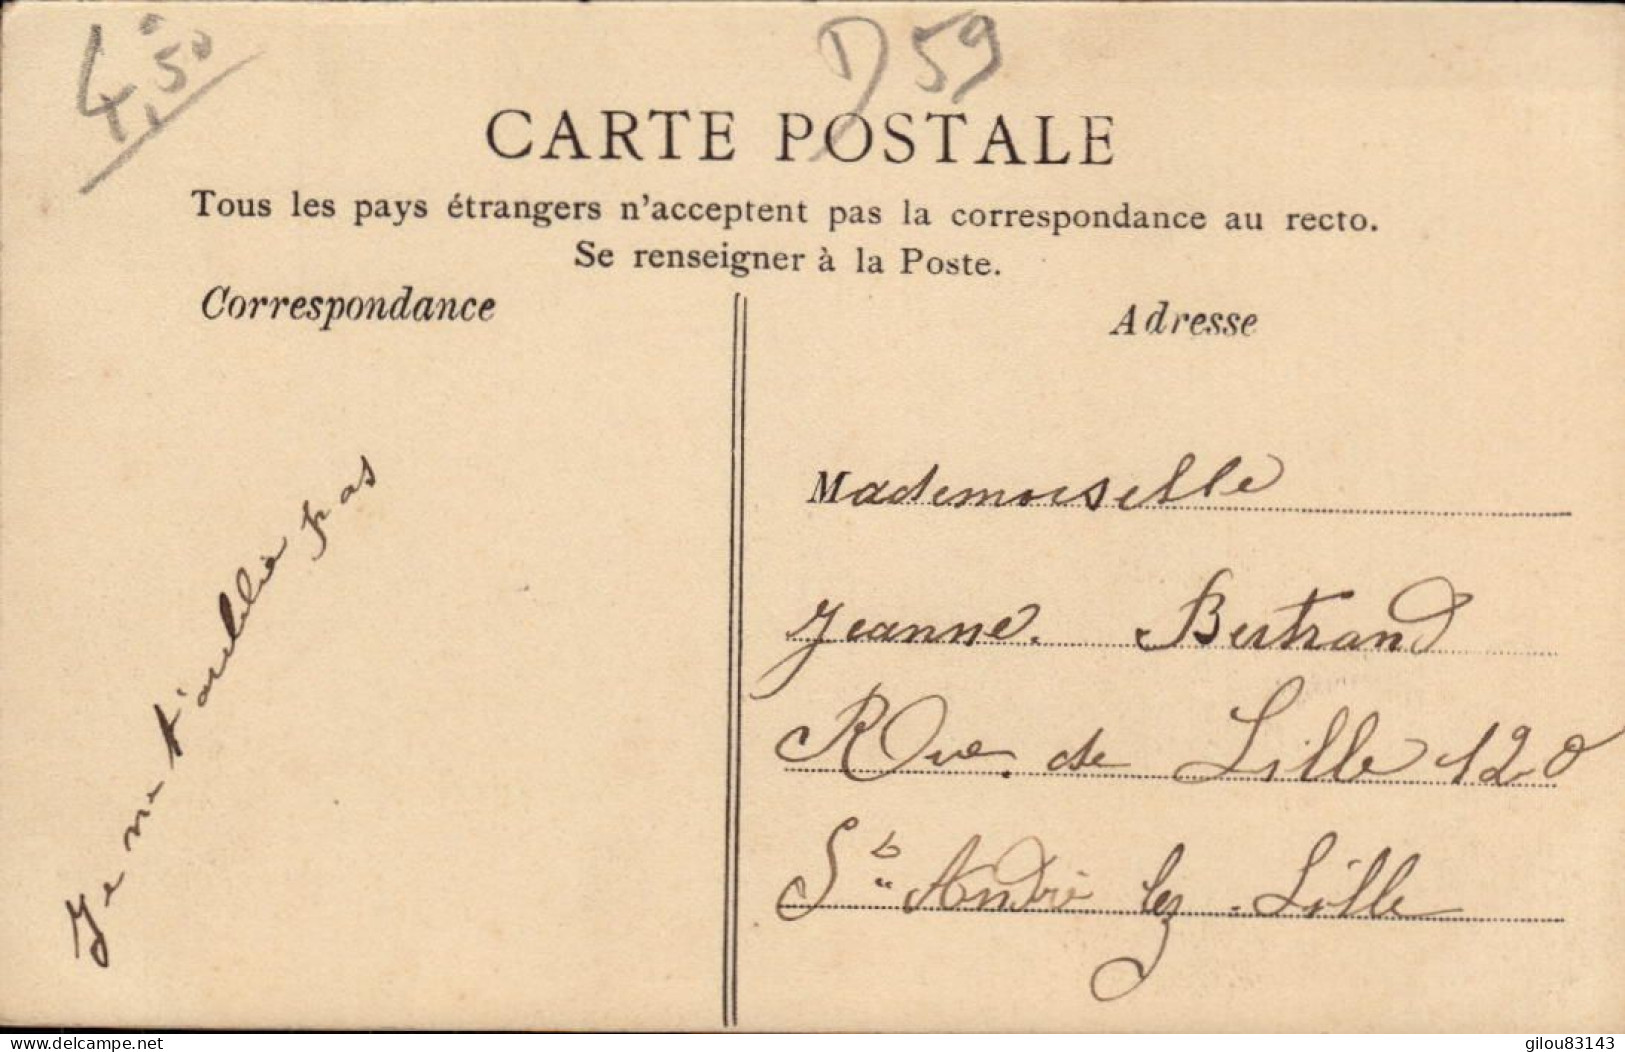 4,50
D 59
CARTE POSTALE
Tous les pays étrangers n'acceptent pas la correspondance au recto.
Se renseigner à la Poste.
Correspondance
Adresse
Je ne t'oublie pas
Mademoiselle
Jeanne. Bertrand
Rue de Lille 120
St André lez-Lille
www.delcampe.net
gilou83143